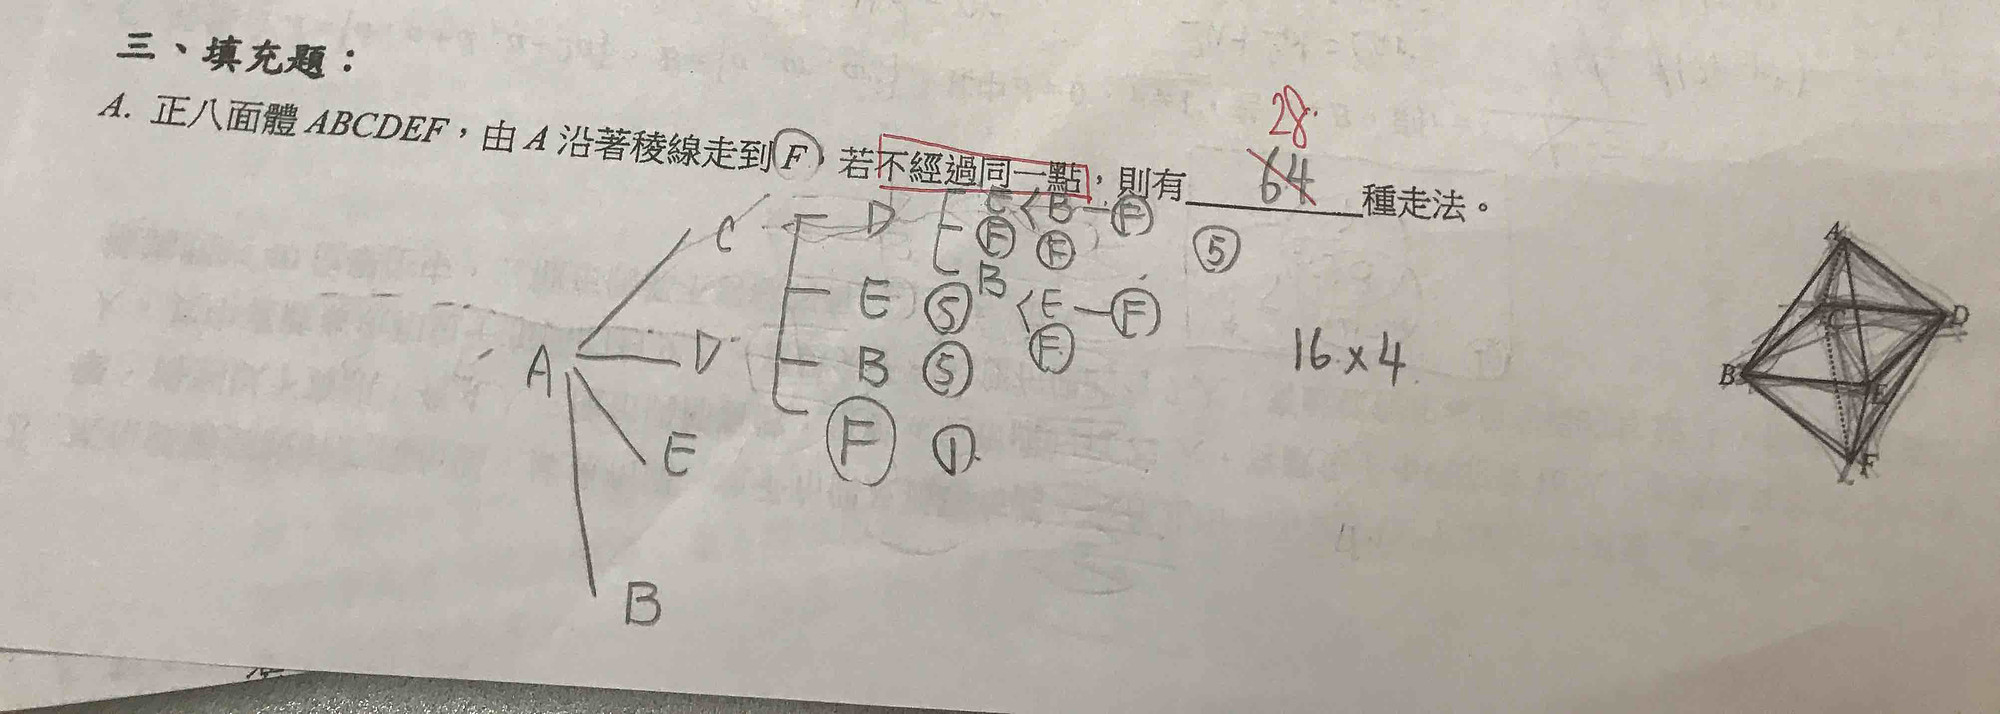 三、填充題：
28.
A. 正八面體 ABCDEF，由 A 沿著稜線走到 F，若不經過同一點，則有 64 種走法。
C D E B F
F F
B
⑤
E ⑤ E F
F
A D B ⑤ 16×4
E F ①
B
A
C D
B E
F